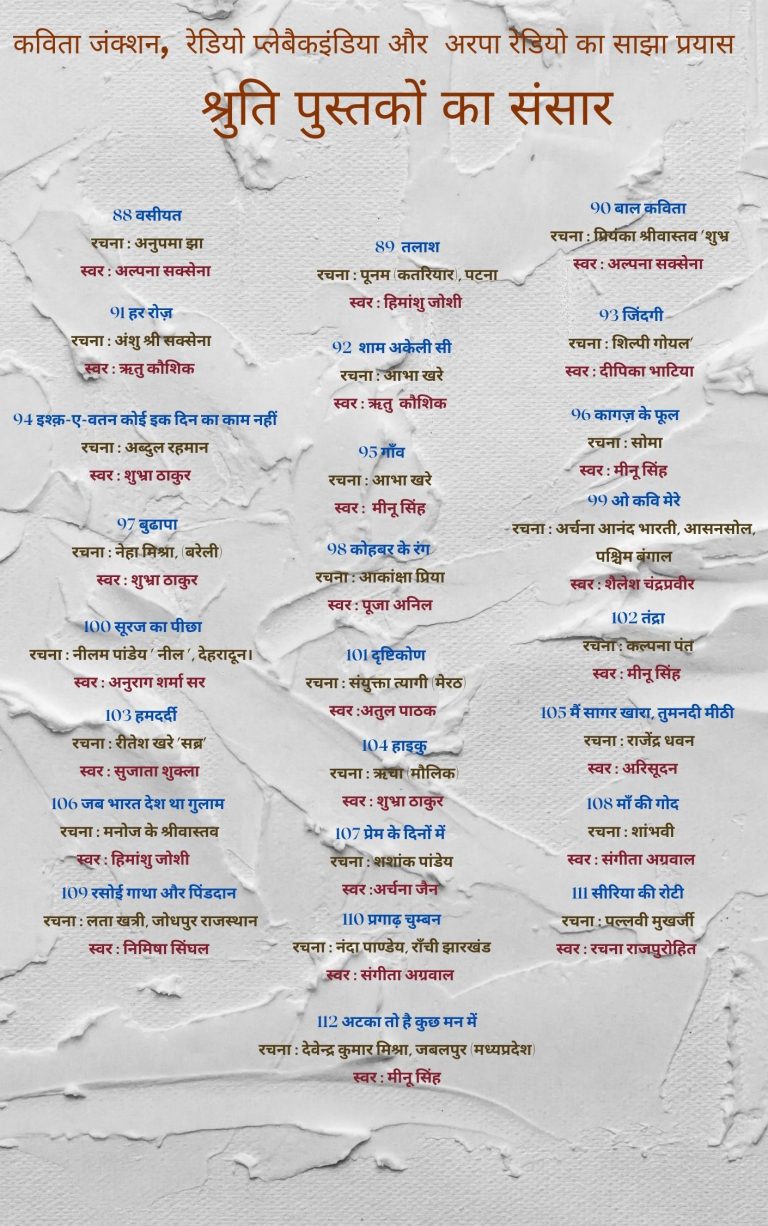 कविता जंक्शन, रेडियो प्लेबैकइंडिया और अरपा रेडियो का साझा प्रयास
श्रुति पुस्तकों का संसार
88 वसीयत
रचना : अनुपमा झा
स्वर : अल्पना सक्सेना
89 तलाश
रचना : पूनम (कतरियार), पटना
स्वर : हिमांशु जोशी
90 बाल कविता
रचना : प्रियंका श्रीवास्तव 'शुभ्र
स्वर : अल्पना सक्सेना
91 हर रोज़
रचना : अंशु श्री सक्सेना
स्वर : ऋतु कौशिक
92 शाम अकेली सी
रचना : आभा खरे
स्वर : ऋतु कौशिक
93 जिंदगी
रचना : शिल्पी गोयल'
स्वर : दीपिका भाटिया
94 इश्क़-ए-वतन कोई इक दिन का काम नहीं
रचना : अब्दुल रहमान
स्वर : शुभ्रा ठाकुर
95 गाँव
रचना : आभा खरे
स्वर : मीनू सिंह
96 कागज़ के फूल
रचना : सोमा
स्वर : मीनू सिंह
97 बुढापा
रचना : नेहा मिश्रा, (बरेली)
स्वर : शुभ्रा ठाकुर
98 कोहबर के रंग
रचना : आकांक्षा प्रिया
स्वर : पूजा अनिल
99 ओ कवि मेरे
रचना : अर्चना आनंद भारती, आसनसोल,
पश्चिम बंगाल
स्वर : शैलेश चंद्रप्रवीर
100 सूरज का पीछा
रचना : नीलम पांडेय ' नील ', देहरादून।
स्वर : अनुराग शर्मा सर
101 दृष्टिकोण
रचना : संयुक्ता त्यागी (मेरठ)
स्वर :अतुल पाठक
102 तंद्रा
रचना : कल्पना पंत
स्वर : मीनू सिंह
103 हमदर्दी
रचना : रीतेश खरे 'सब्र'
स्वर : सुजाता शुक्ला
104 हाइकु
रचना : ऋचा (मौलिक)
स्वर : शुभ्रा ठाकुर
105 मैं सागर खारा, तुमनदी मीठी
रचना : राजेंद्र धवन
स्वर : अरिसूदन
106 जब भारत देश था गुलाम
रचना : मनोज के श्रीवास्तव
स्वर : हिमांशु जोशी
107 प्रेम के दिनों में
रचना : शशांक पांडेय
स्वर :अर्चना जैन
108 माँ की गोद
रचना : शांभवी
स्वर : संगीता अग्रवाल
109 रसोई गाथा और पिंडदान
रचना : लता खत्री, जोधपुर राजस्थान
स्वर : निमिषा सिंघल
110 प्रगाढ़ चुम्बन
रचना : नंदा पाण्डेय, राँची झारखंड
स्वर : संगीता अग्रवाल
111 सीरिया की रोटी
रचना : पल्लवी मुखर्जी
स्वर : रचना राजपुरोहित
112 अटका तो है कुछ मन में
रचना : देवेन्द्र कुमार मिश्रा, जबलपुर (मध्यप्रदेश)
स्वर : मीनू सिंह